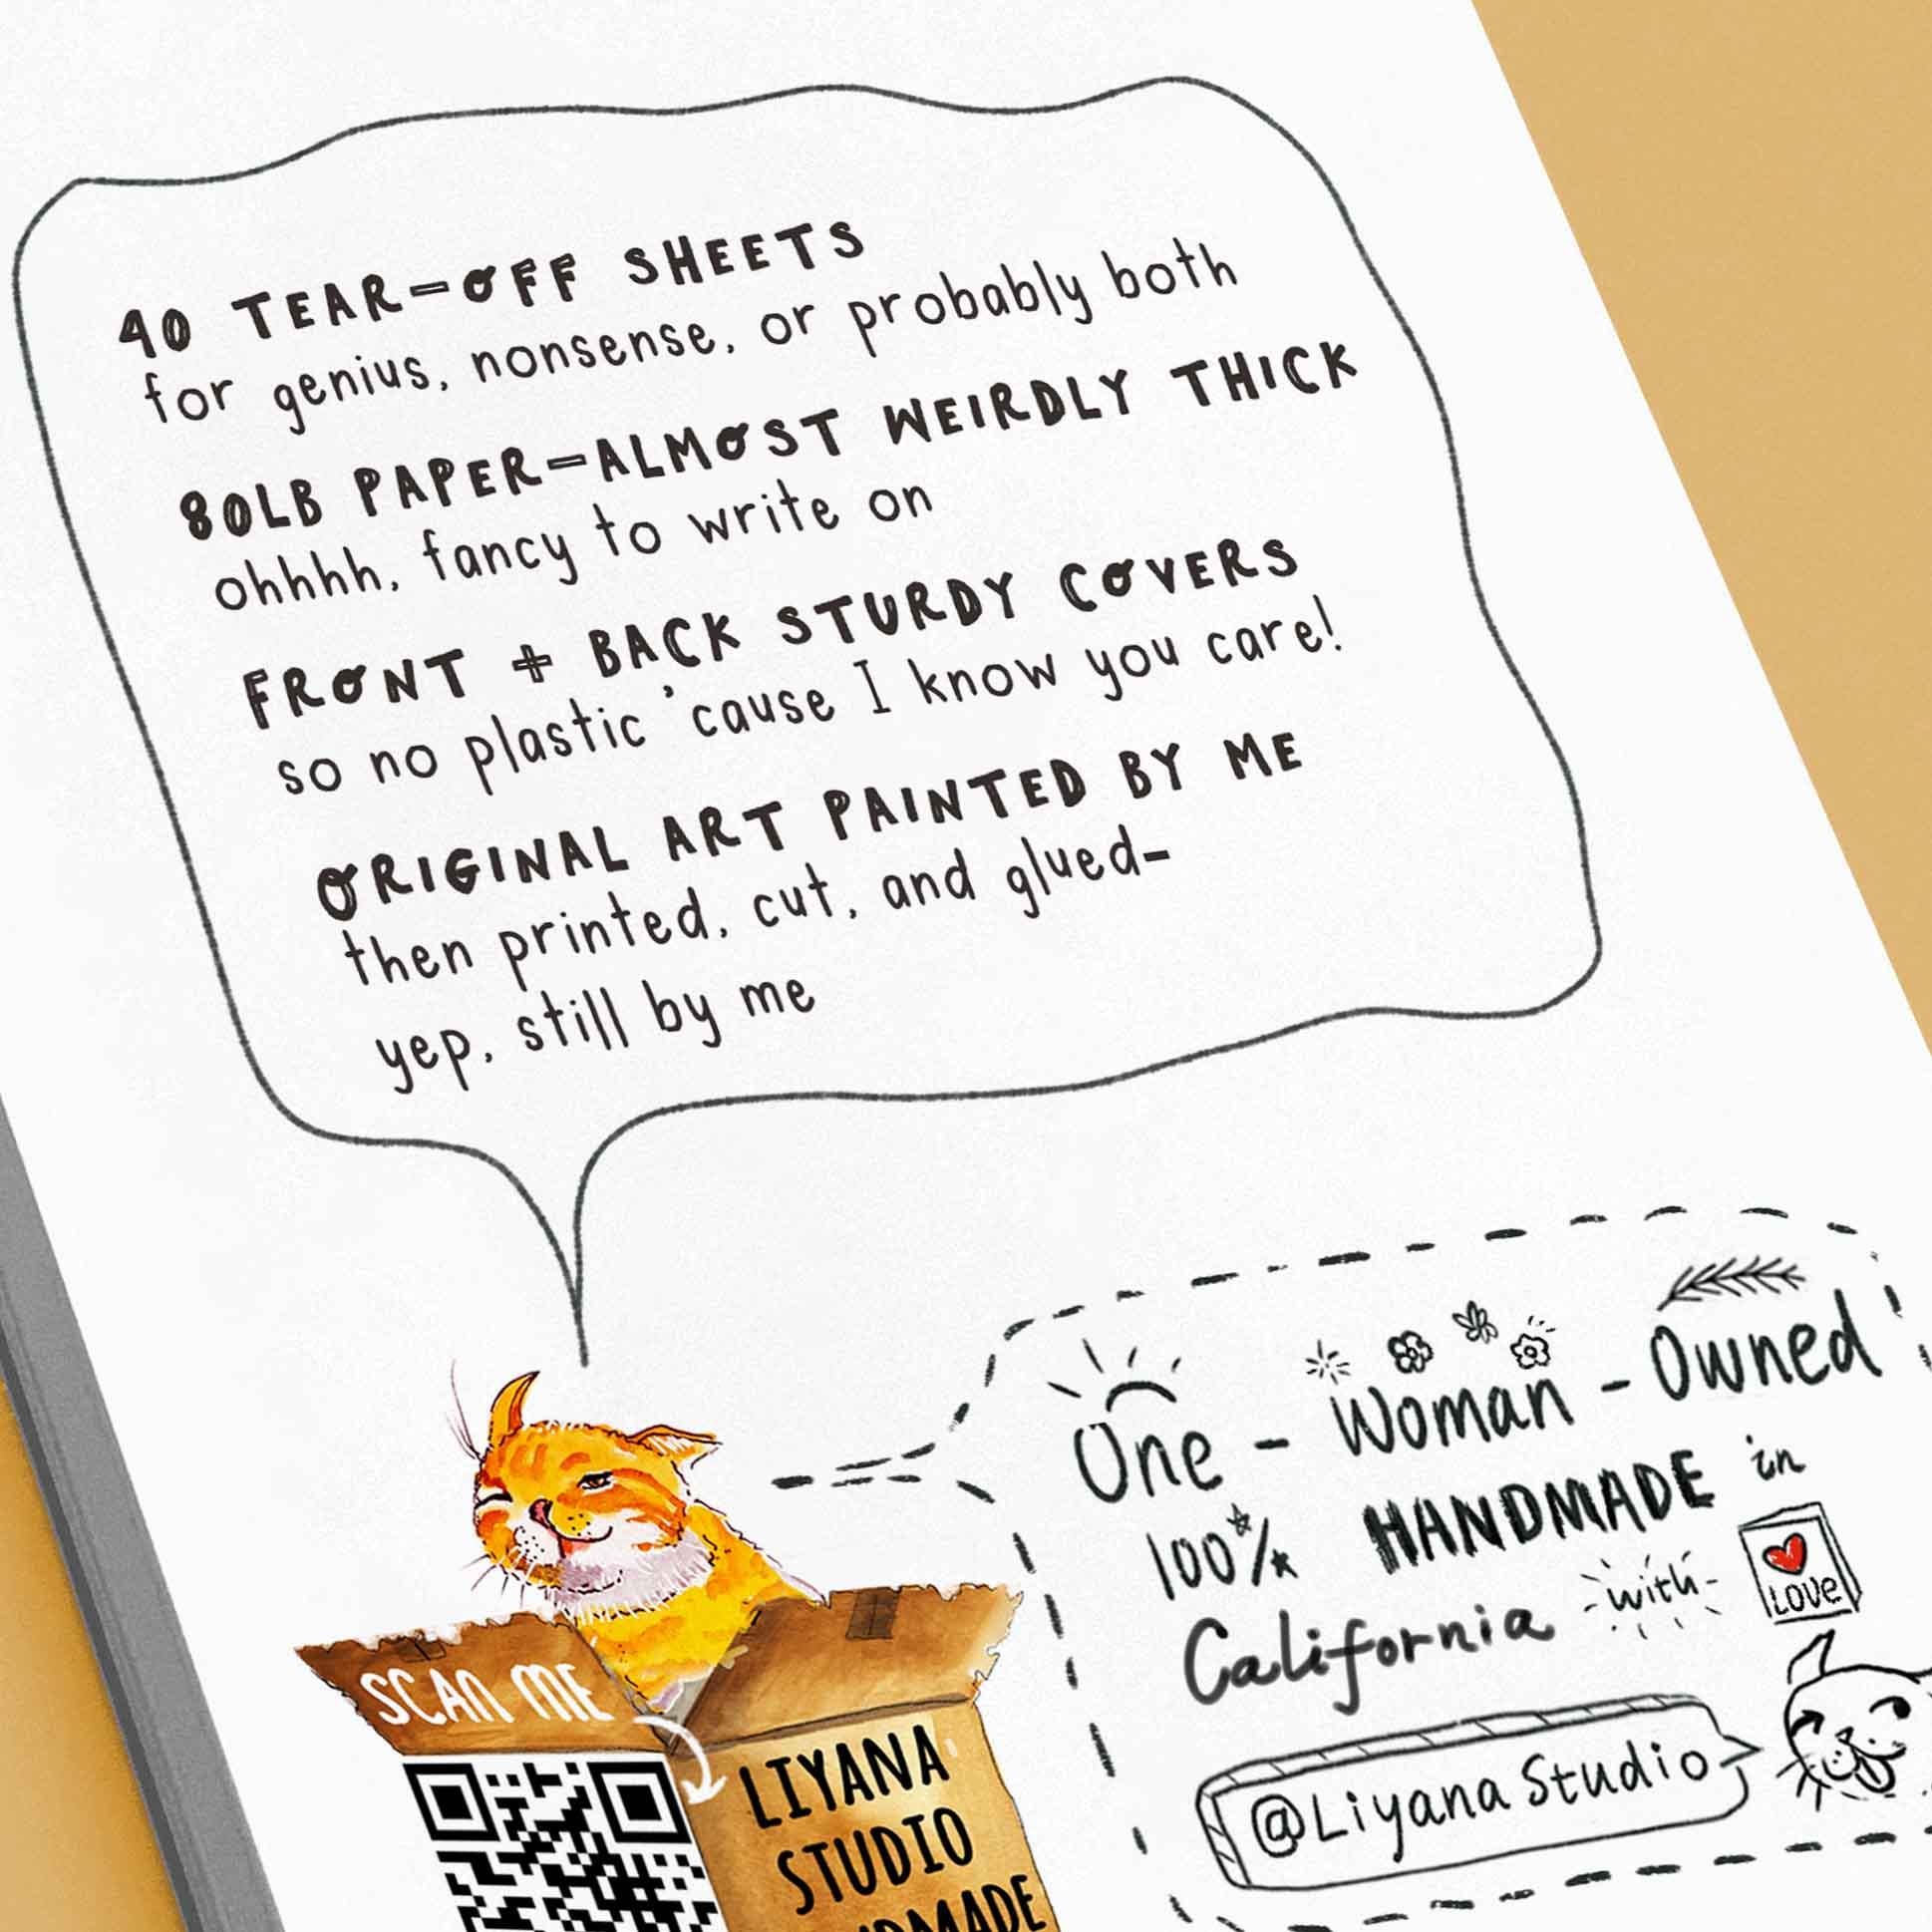 40 TEAR-OFF SHEETS
for genius, nonsense, or probably both
80LB PAPER-ALMOST WEIRDLY THICK
ohhhh, fancy to write on
FRONT + BACK STURDY COVERS
so no plastic 'cause I know you care!
ORIGINAL ART PAINTED BY ME
then printed, cut, and glued-
yep, still by me
One - Woman - Owned
100% HANDMADE in
California with LOVE
@LiyanaStudio
SCAN ME
LIYANA
STUDIO